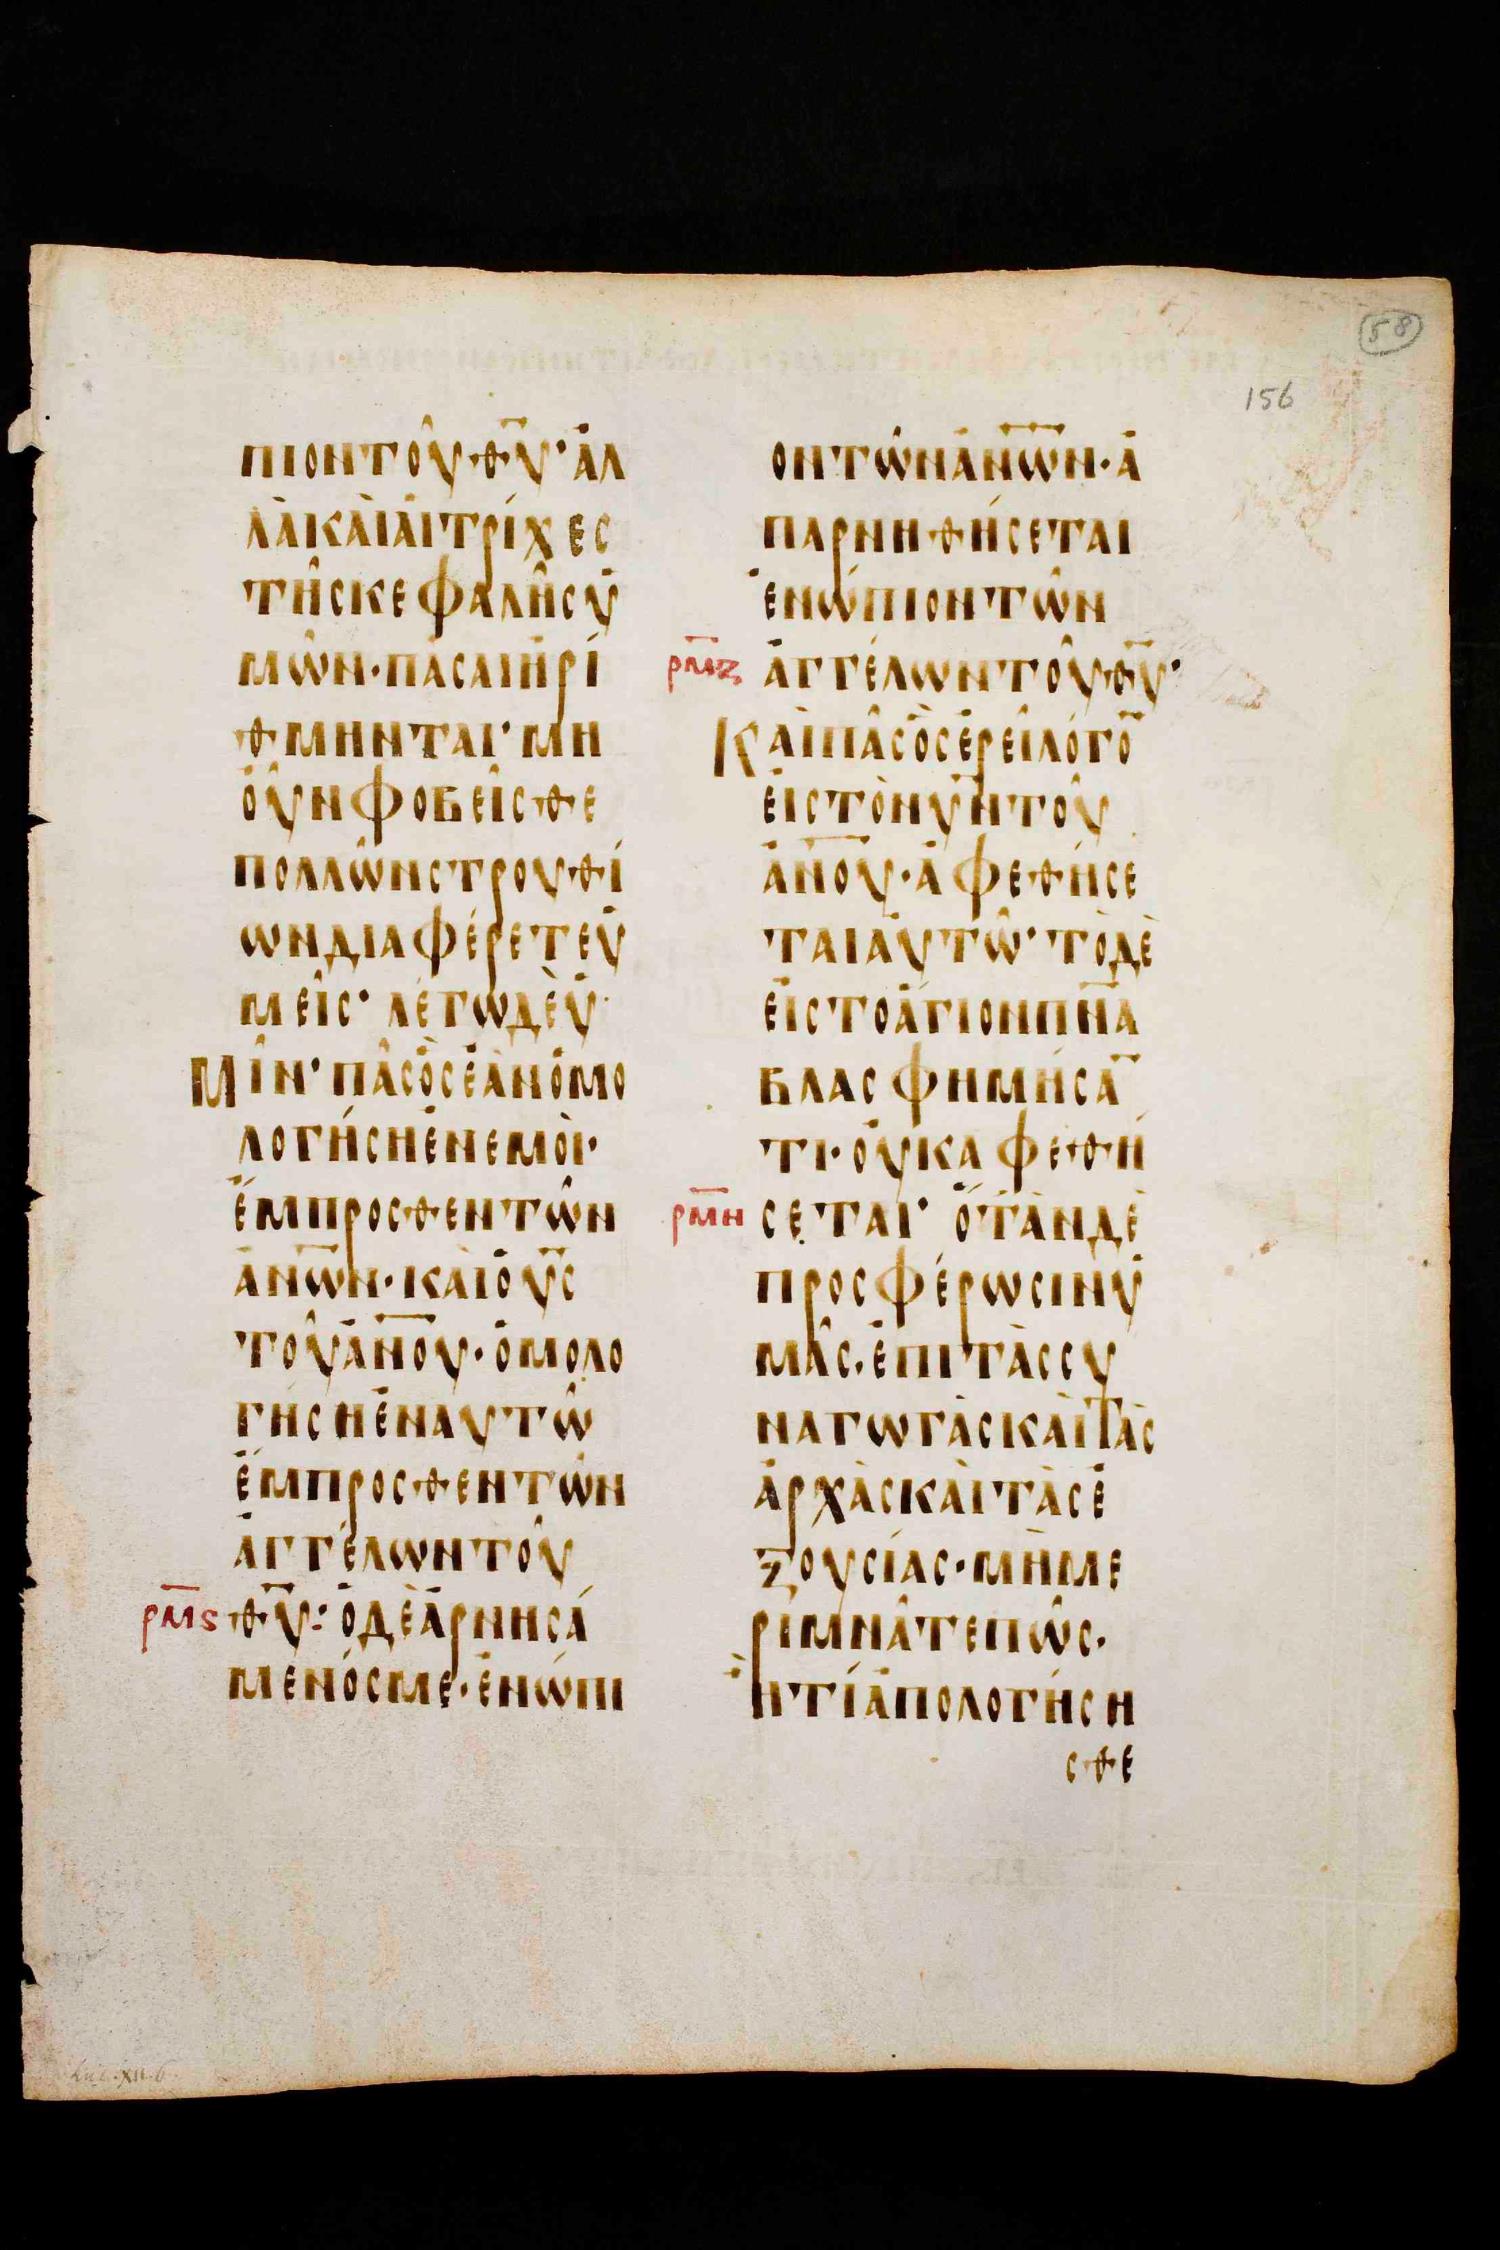 58
156
πιον του θ̅υ̅· αλ
λα και αι τριχες
της κεφαλης υ
μων· πασαι ηρι
θμηνται· μη
ουν φοβεισθε
πολλων στρουθι
ων διαφερετε υ
μεις· λεγω δε υ
Μιν· πας ος εαν ομο
λογηση εν εμοι·
εμπροσθεν των
α̅ν̅ω̅ν̅· και ο υ̅ς̅
του α̅ν̅ο̅υ̅· ομολο
γηση εν αυτω
εμπροσθεν των
αγγελων του
ρ̅μ̅ς̅ θ̅υ̅: ο δε αρνησα
μενος με· ενωπι
ον των α̅ν̅ω̅ν̅· α
παρνηθησεται
ενωπιον των
ρ̅μ̅ζ̅ αγγελων του θ̅υ̅·
Και πας ος ερει λογο̅
εις τον υ̅ν̅ του
α̅ν̅ο̅υ̅· αφεθησε
ται αυτω· το δε
εις το αγιον π̅ν̅α̅
βλασφημησα̅
τι· ουκ αφεθη
ρ̅μ̅η̅ σεται· οταν δε
προσφερωσιν υ
μας· επι τας συ
ναγωγας και τας
αρχας και τας ε
ξουσιας· μη με
ριμνατε πως·
η τι απολογηση
σθε
Luc. XII. 6